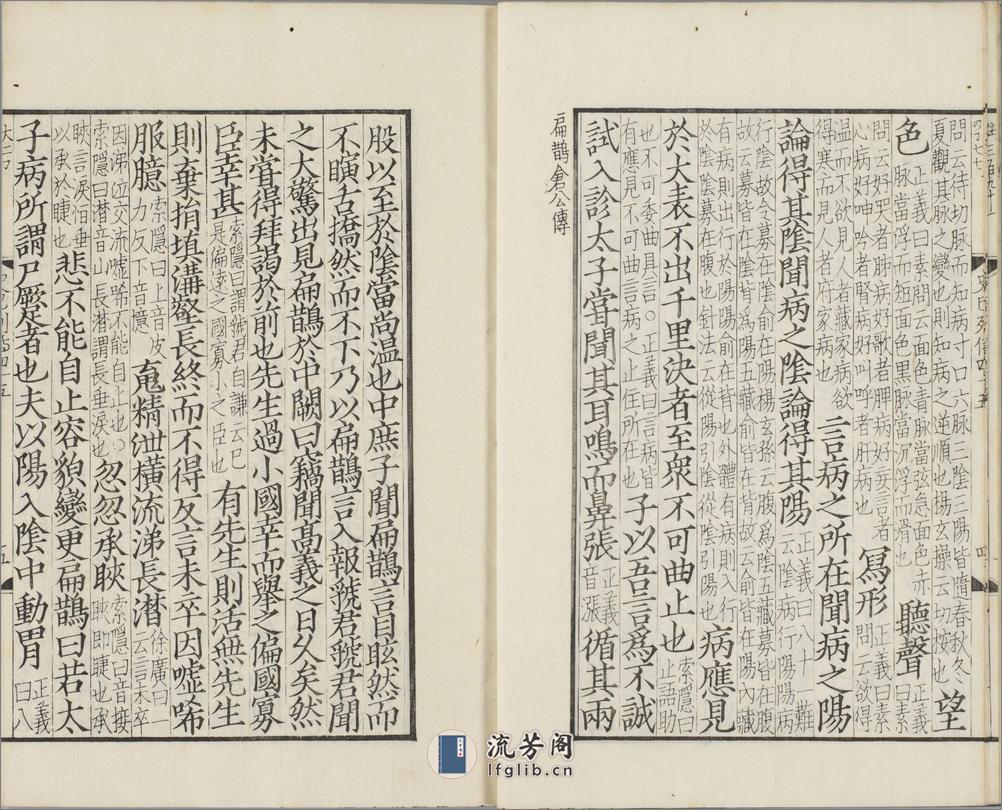 問云待切脉而知病寸口六脉三陰三陽皆隨春秋冬
夏觀其脉之變也則知病之逆順也楊玄操云切按也
望
色
正義曰素問云面色青脉當弦急面色赤
脉當浮而短面色黑脉當沉浮而滑也
聽聲
正義
曰素
問云好哭者肺病好歌者脾病好妄言者
心病好呻吟者腎病好叫呼者肝病也
冩形
正義曰素
問云欲得
温而不欲見人者藏家病欲
得寒而見人者府家病也
言病之所在聞病之陽
論得其陰聞病之陰論得其陽
正義曰八十一難
云陰病行陽陽病
行陰故令募在陰俞在陽楊玄孫云腹爲陰五藏募皆在腹
故云募皆在陰背爲陽五藏俞皆在背故云俞皆在陽內藏
有病則出行於陽陽俞在背也外體有病則入行
於陰陰募在腹也針法云從陽引陰從陰引陽也
病應見
於大表不出千里決者至衆不可曲止也
索隱曰
止語助
也不可委曲具言○正義曰言病皆
有應見不可曲言病之止住所在也
子以吾言爲不誠
試入診太子當聞其耳鳴而鼻張
正義
音漲
循其兩
扁鵲倉公傳
股以至於陰當尚温也中庶子聞扁鵲言目眩然而
不瞚舌撟然而不下乃以扁鵲言入報虢君虢君聞
之大驚出見扁鵲於中闕曰竊聞髙義之日久矣然
未甞得拜謁於前也先生過小國幸而舉之偏國寡
臣幸甚
索隱曰謂虢君自謙云巳
是偏遠之國寡小之臣也
有先生則活無先生
則棄捐填溝壑長終而不得反言未卒因嘘唏
服臆
索隱曰上音皮
力反下音憶
䰟精泄橫流涕長潸
徐廣曰一
云言未卒
因涕泣交流嘘唏不能自止也○
索隱曰潸音山長潸謂長垂淚也
忽忽承䀹
索隱曰音接
䀹即睫也承
䀹言淚恒垂
以承於睫也
悲不能自止容貌變更扁鵲曰若太
子病所謂尸蹷者也夫以陽入陰中動胃
正義
曰八
五
流芳阁
lfglib.cn